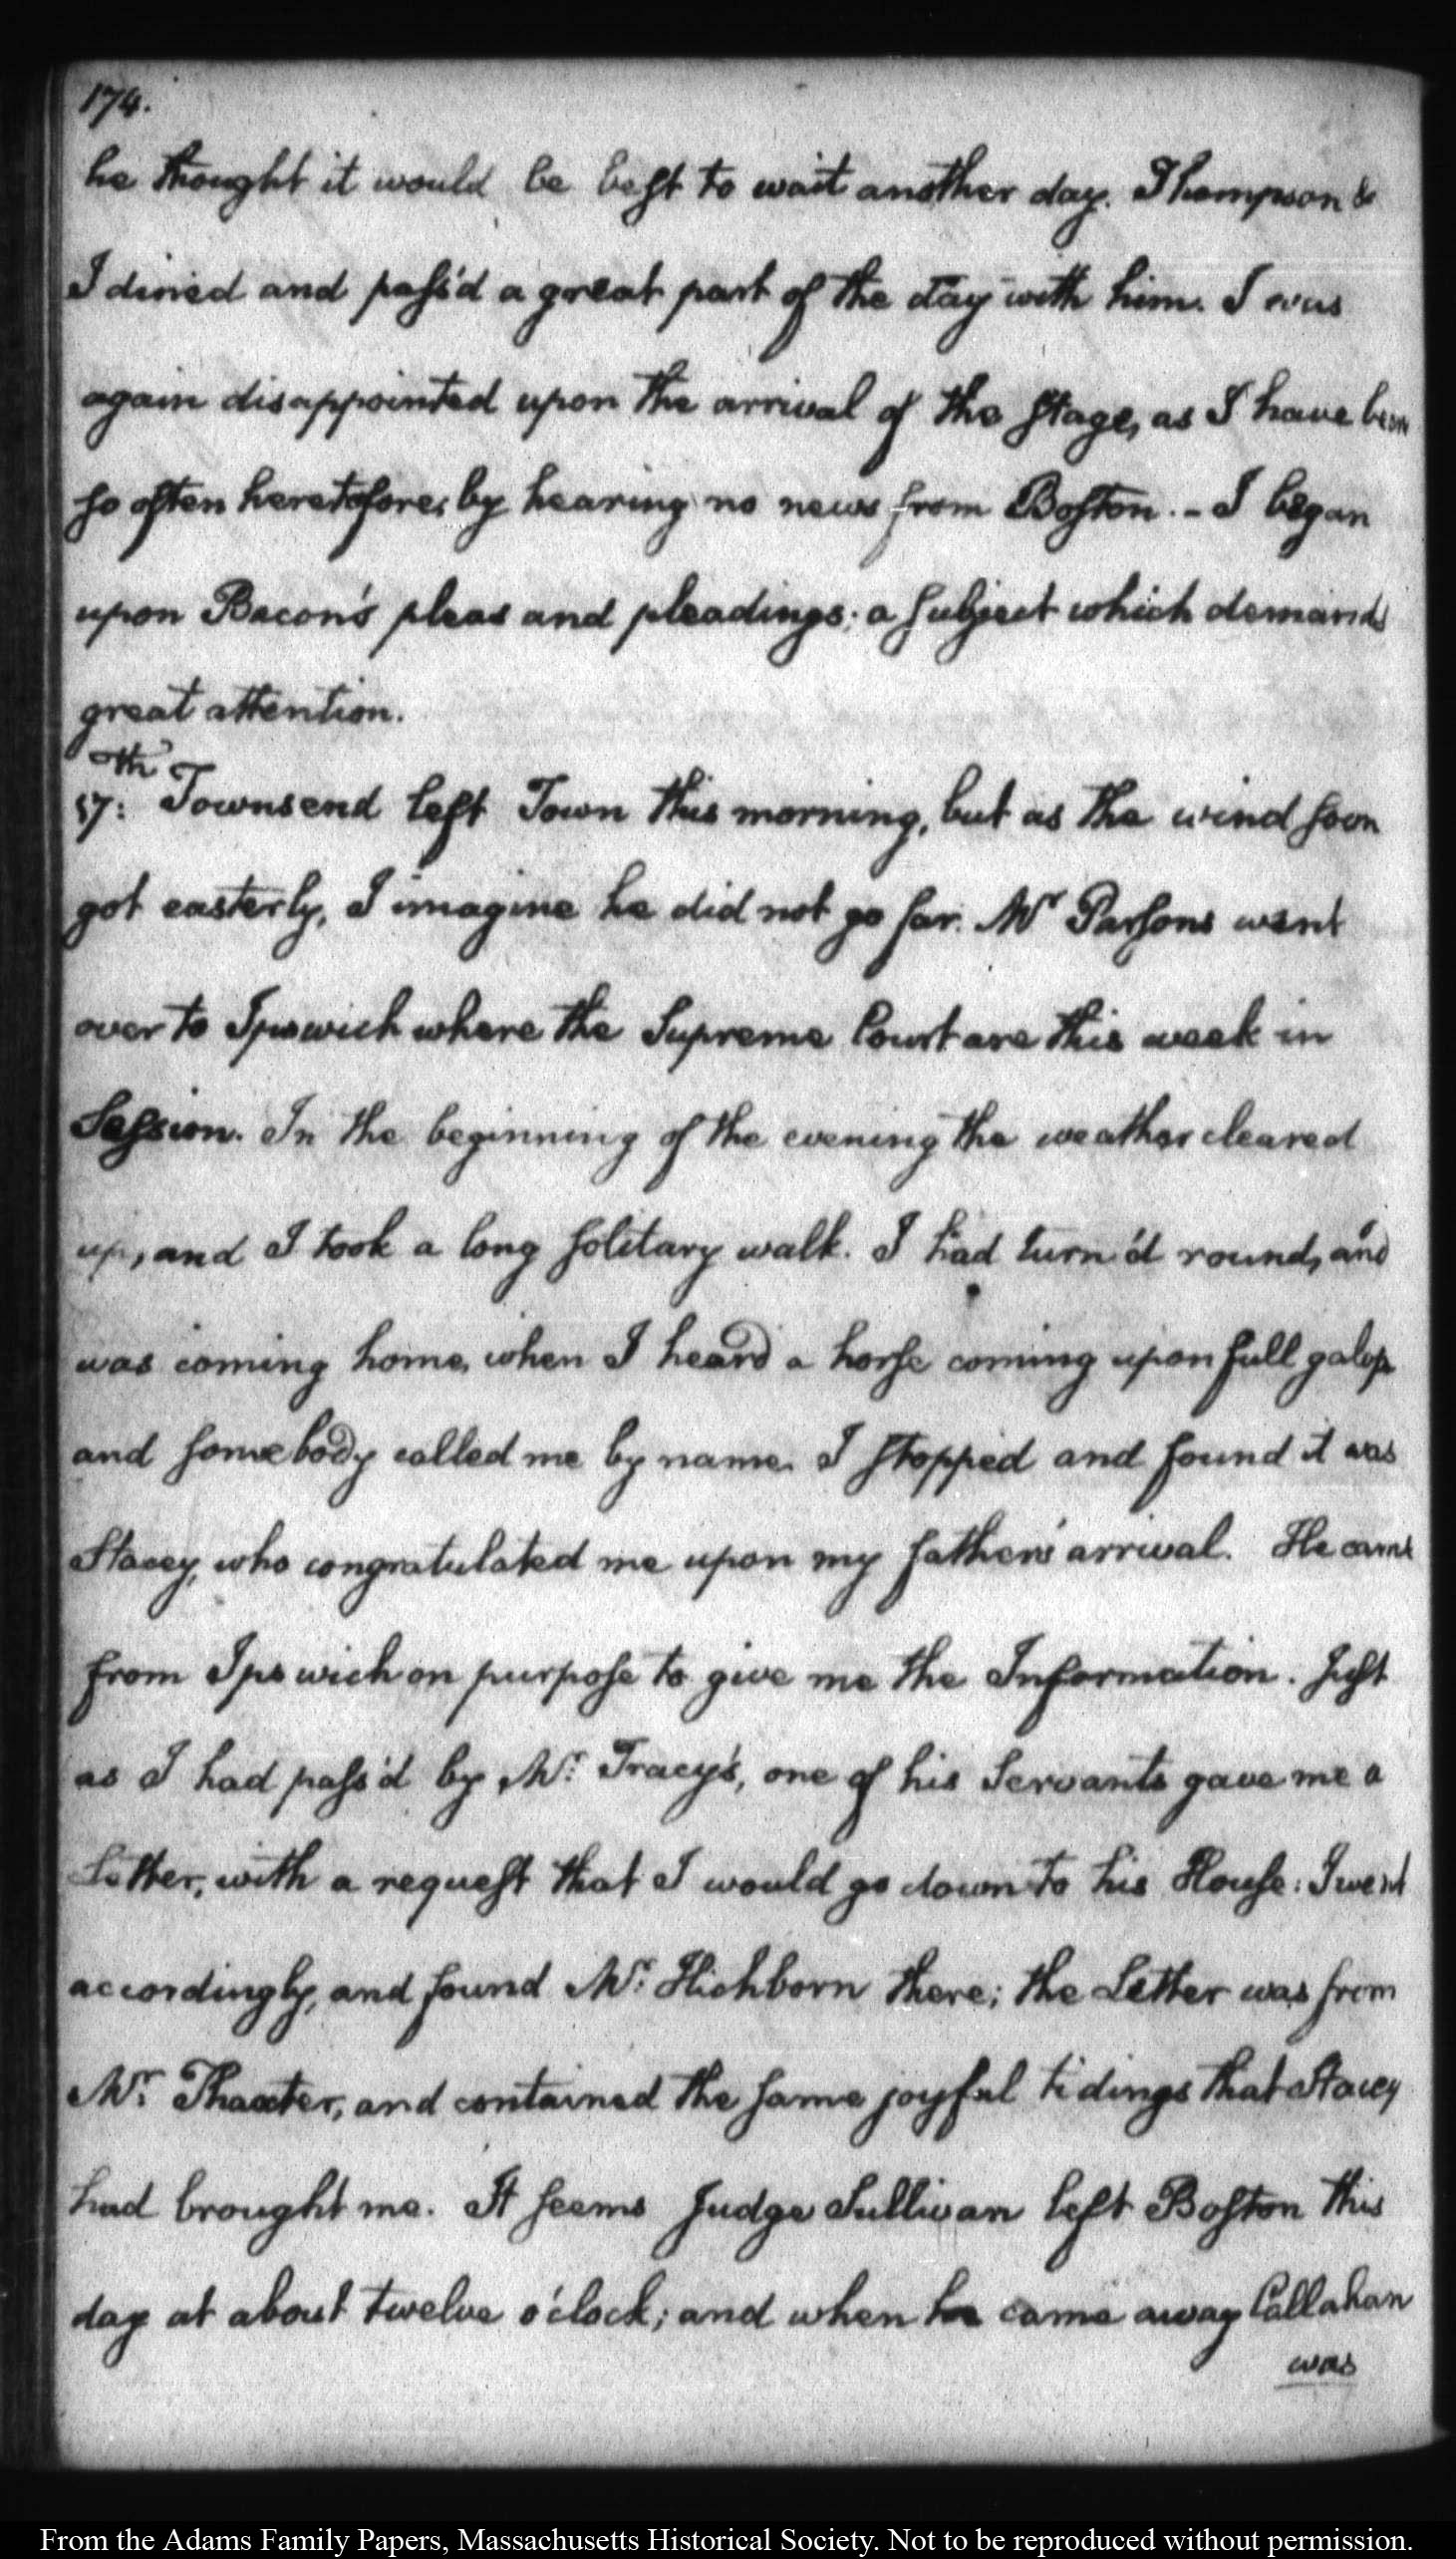 174.
he thought it would be best to wait another day. Thompson &
I dined and pass'd a great part of the day with him. I was
again disappointed upon the arrival of the Stage, as I have been
so often heretofore, by hearing no news from Boston. - I began
upon Bacon's pleas and pleadings; a subject which demands
great attention.
17th: Townsend left Town this morning, but as the wind soon
got easterly, I imagine he did not go far. Mr Parsons went
over to Ipswich where the Supreme Court are this week in
Session. In the beginning of the evening the weather cleared
up, and I took a long solitary walk. I had turn'd round, and
was coming home, when I heard a horse coming upon full galop
and somebody called me by name. I stopped and found it was
Stacey, who congratulated me upon my father's arrival. He came
from Ipswich on purpose to give me the Information. Just
as I had pass'd by Mr. Tracy's, one of his Servants gave me a
Letter, with a request that I would go down to his House: I went
accordingly, and found Mr. Hichborn there; the Letter was from
Mr. Thaxter, and contained the same joyful tidings that Stacey
had brought me. It seems Judge Sullivan left Boston this
day at about twelve o'clock; and when he came away Callahan
was
From the Adams Family Papers, Massachusetts Historical Society. Not to be reproduced without permission.